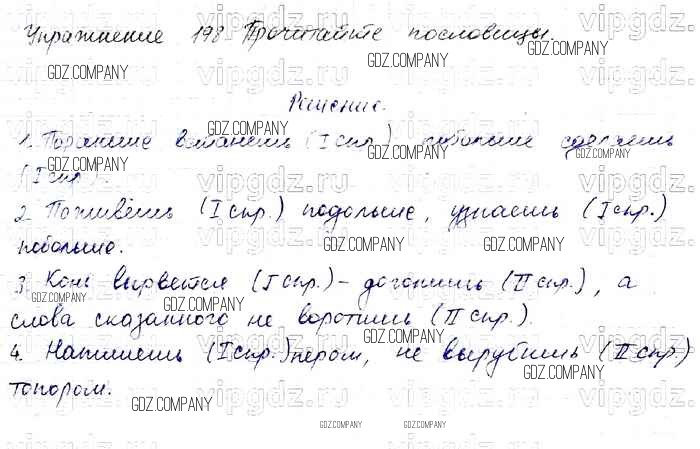 Упражнение 198 Прочитайте пословицы.
Решение.
1. Пораньше встанешь (I спр.) побольше сделаешь
(I спр.)
2. Поживёшь (I спр.) подольше, узнаешь (I спр.)
побольше.
3. Конь вырвется (I спр.) - догонишь (II спр.), а
слова сказанного не воротишь (II спр.).
4. Напишешь (I спр.) пером, не вырубишь (II спр)
топором.